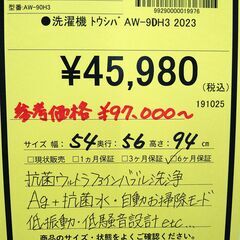 型番:AW-90H3
99290000019976
●洗濯機 トウシバ AW-9DH3 2023
¥45,980
(税込)
191025
参考価格 ¥97,000〜
サイズ 幅:54 奥行:56 高さ:94 cm
□現状販売 □1ヵ月保証 □3ヶ月保証 ☑6ヶ月保証
抗菌ウルトラファインバブル洗浄
Ag+抗菌水・自動お掃除モード
低振動・低騒音設計etc...
商品のサイズ・状態をよくご確認